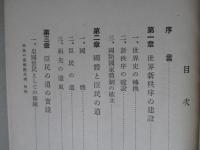 目次
序言
第一章 世界新秩序の建設
一、世界史の轉換
二、新秩序の建設
三、國防國家體制の確立
第二章 國體と臣民の道
一、國體
二、臣民の道
三、祖先の遺風
第三章 臣民の道の實踐
一、皇國臣民としての修練